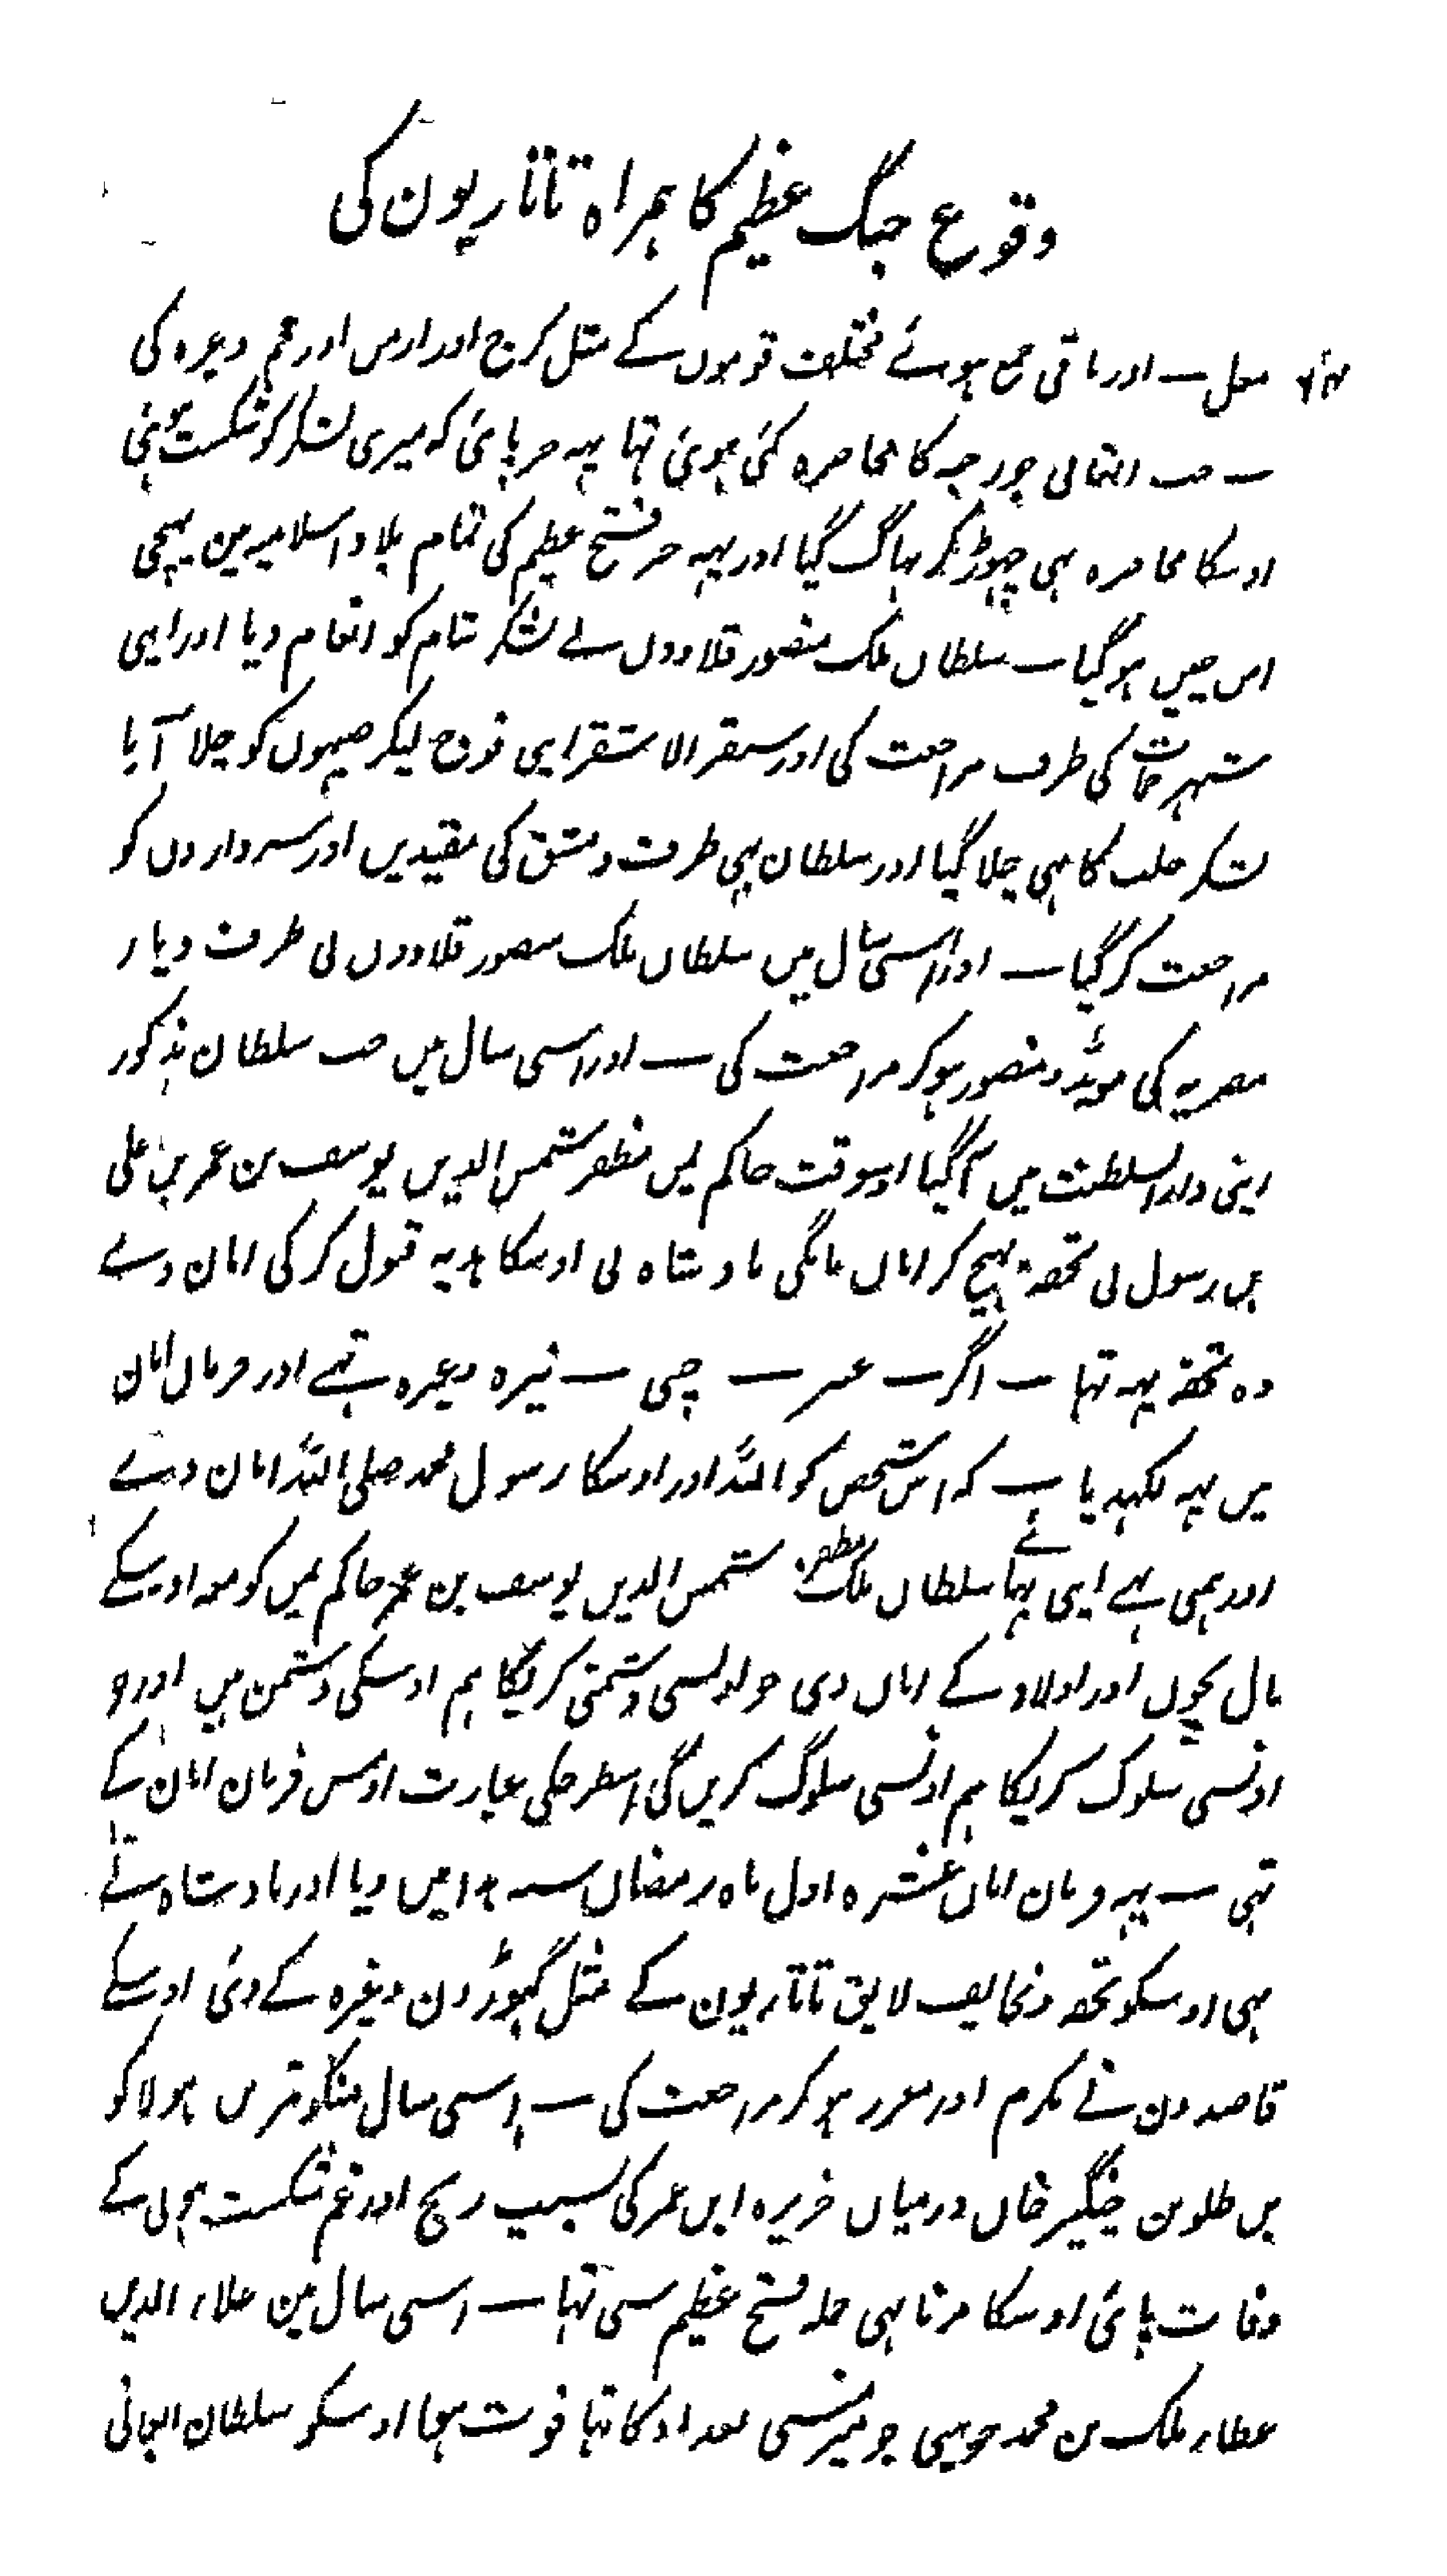 وقوع جنگ عظیم کا ہمراہ تاتاریون کی
مغل ـ اور باقی جمع ہوئے مختلف قوموں کے مثل کرج اور ارمن اور عجم وغیرہ کی
ـ جب ابغا نی جو رحبہ کا محاصرہ کئی ہوئی تہا یہہ خبر پائی کہ میری لشکر کو شکست ہوئی
اوسکا محاصرہ ہی چہوڑ کر بہاگ گیا اور یہہ خبر فتح عظیم کی تمام بلاد اسلامیہ مین پہنچی
اس میں ہو گیا ـ سلطان ملک منصور قلاووں نے لشکر تمام کو انعام دیا اور اپنی
شہر حمات کی طرف مراجعت کی اور سنقر الاشقر اپنی فوج لیکر صہیوں کو چلا آیا
لشکر حلب کا بہی چلا گیا اور سلطان بہی طرف دمشق کی مقیدیں اور سرداروں کو
مراجعت کر گیا ـ اور اسی سال میں سلطاں ملک منصور قلاووں نی طرف دیار
مصریہ کی موید و منصور ہو کر مراجعت کی ـ اور اسی سال میں جب سلطان مذکور
اپنی دار السلطنت میں آگیا اوسوقت حاکم یمں مظفر شمس الدیں یوسف بن عمر بن علی
بں رسول نی تحفہ بہیج کر اماں مانگی بادشاہ نی اوسکا ہدیہ قبول کر کی امان دے
وہ تحفہ یہہ تہا ـ اگر ـ عنبر ـ چینی ـ نیزہ وغیرہ تہے اور فرماں امان
میں یہہ لکہدیا ہے کہ اس شخص کو اللہ اور اوسکا رسول محمد صلی اللہ امان دے
اور ہمی نے اپنی بہائے سلطاں ملک مظفر شمس الدیں یوسف بن عمر حاکم یمں کو معہ اوسکے
بال بچوں اور اولاد کے اماں دی جو اونسی دشمنی کریگا ہم اوسکی دشمن ہیں اور جو
اونسی سلوک کریگا ہم اونسی سلوک کریں گی اسطرحکی عبارت اوس فرمان امان کے
تہی ـ یہہ فرمان اماں عشرہ اول ماہ رمضاں سنہ میں دیا اور بادشاہ نے
بہی اوسکو تحفہ و تحایف لایق تاتاریون کے مثل گہوڑون وغیرہ کے دئی اوسکے
قاصدون نے مکرم اور معزز ہو کر مراجعت کی ـ اسی سال منکوتمر بں ہولاکو
بں طلو بن چنگیز خاں درمیاں جزیرہ ابں عمر کی بسبب رنج اور غم شکست کے
وفات پائی اوسکا مرنا بہی جملہ فتح عظیم سی تہا ـ اسی سال مین علاء الدیں
عطاء ملک بن محمد جوینی جو میر منشی بغداد کا تہا فوت ہوا اوسکو سلطان